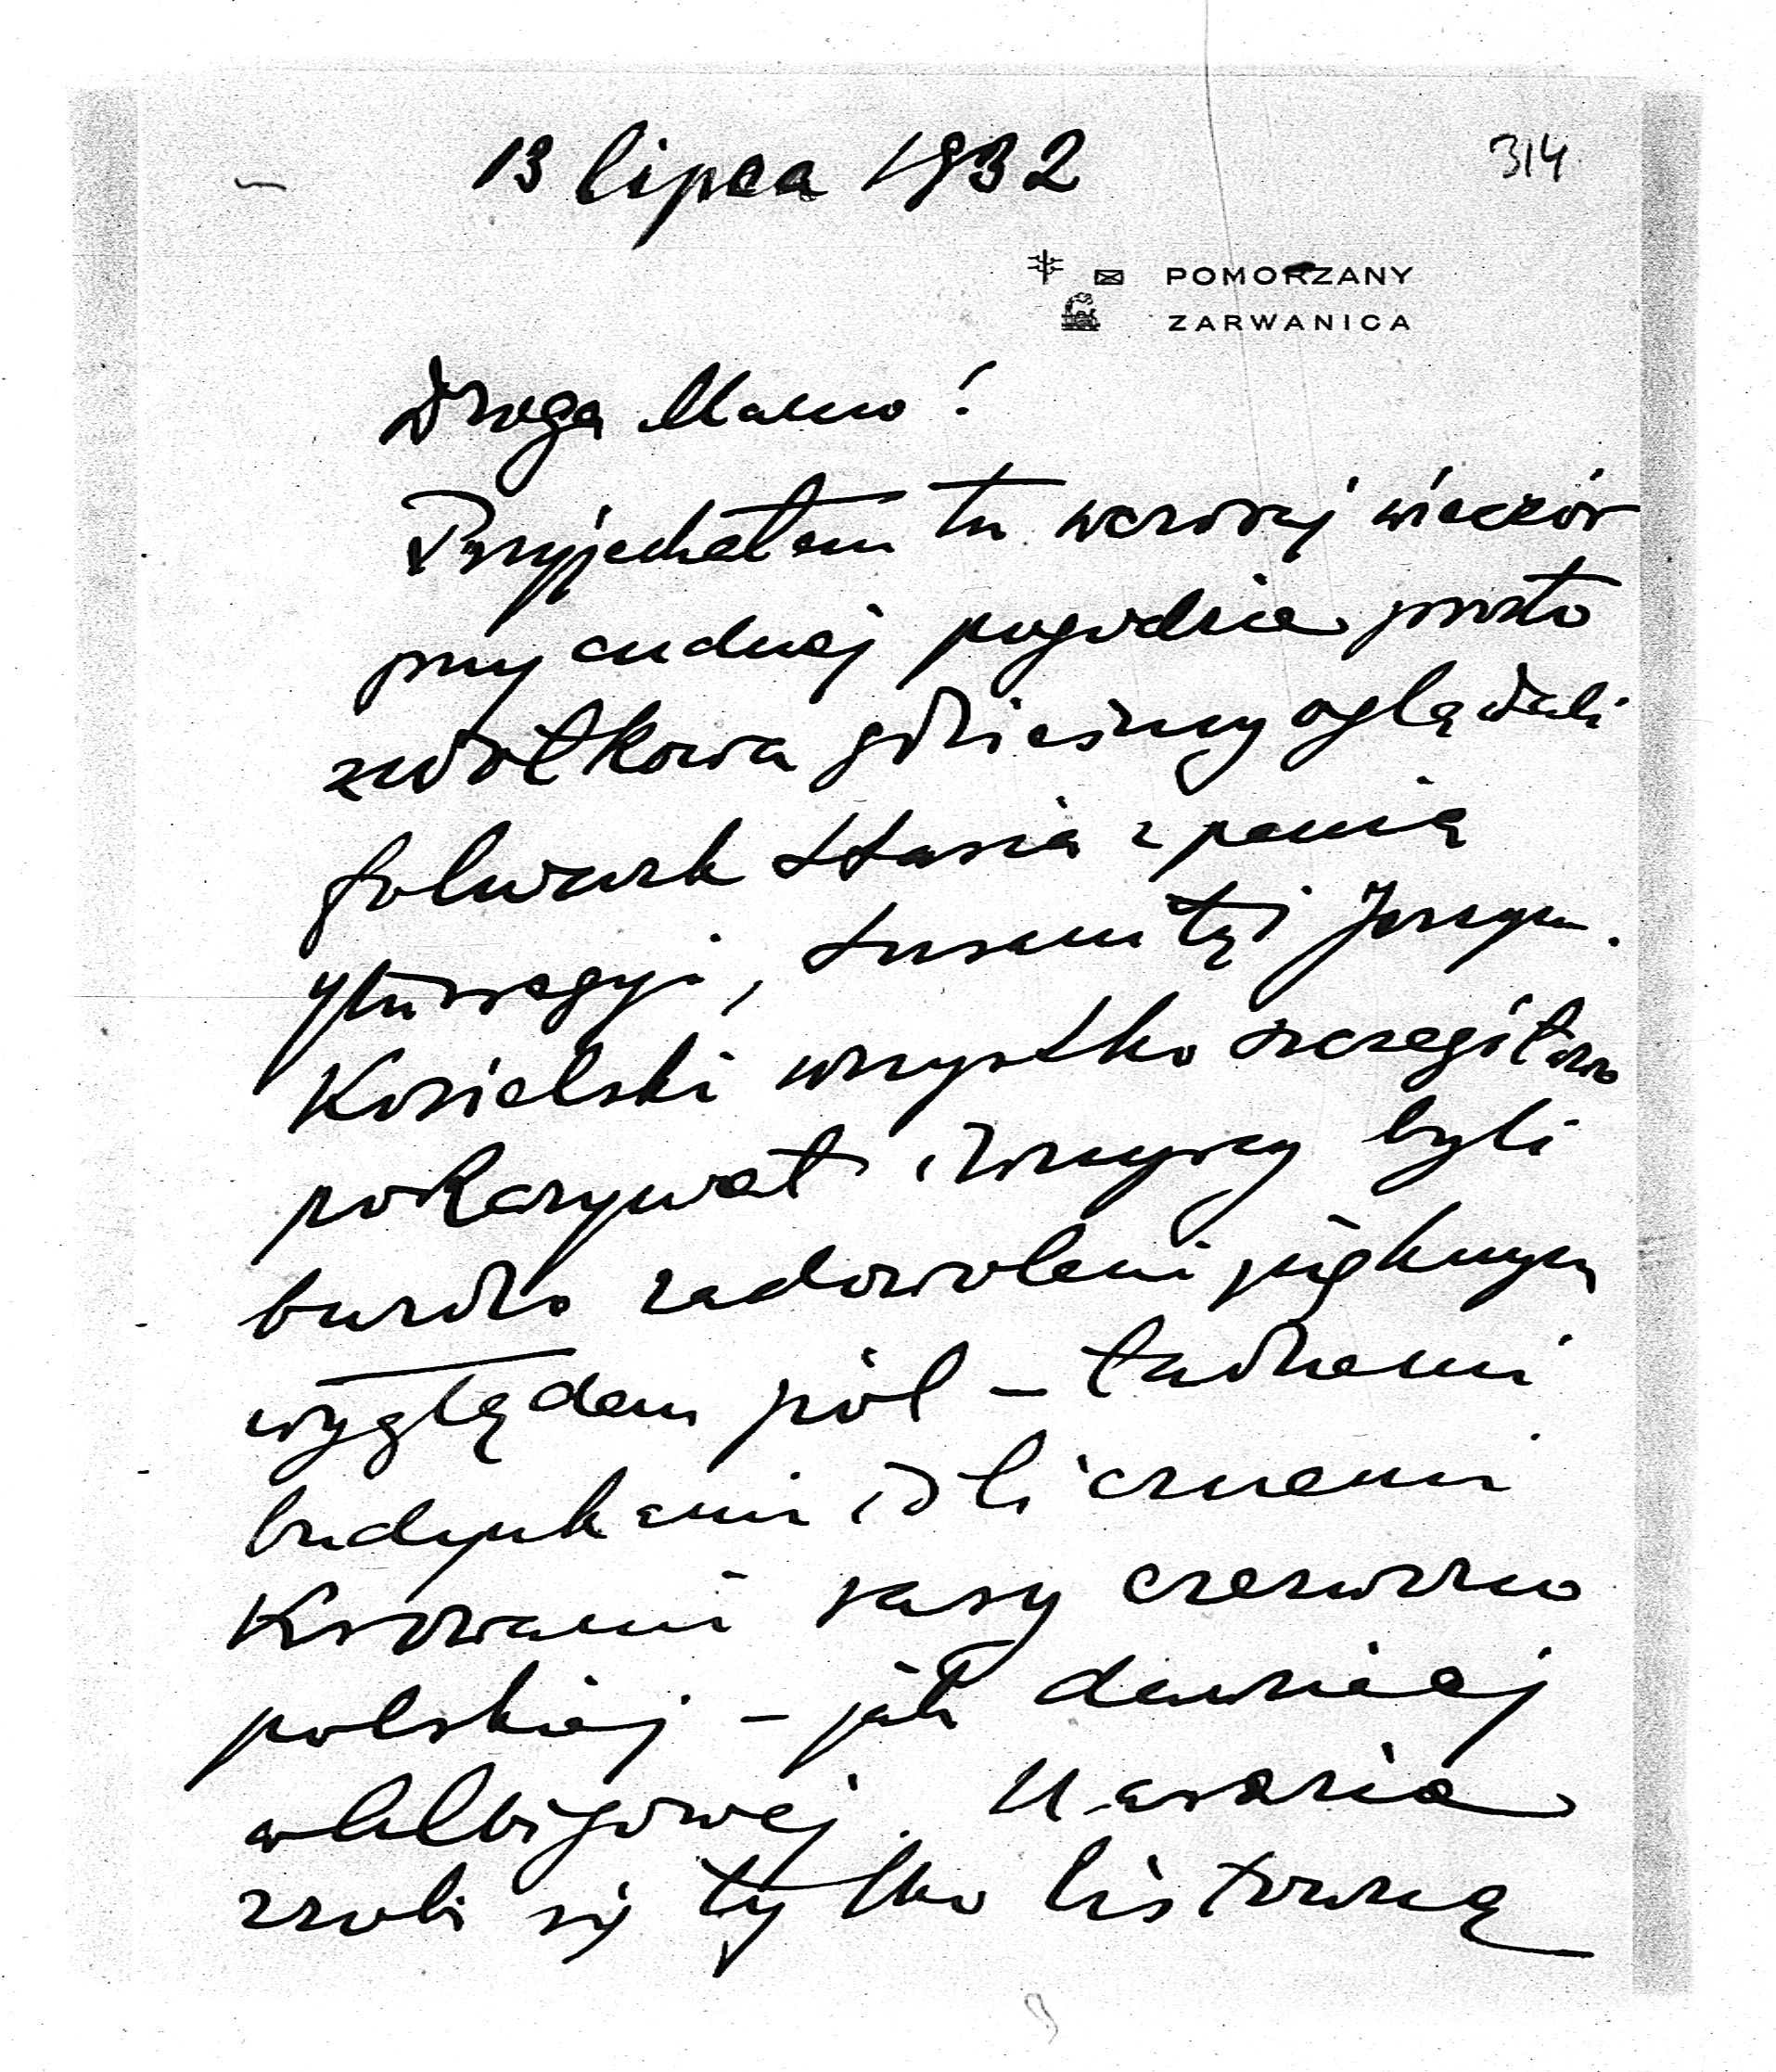 13 lipca 1932
314
POMORZANY
ZARWANICA
Droga Mamo!
Przyjechałem tu wczoraj wieczór
przy cudnej pogodzie prosto
gdzieśmy oglądali
folwark Stasia z panią
Zuzanną i Jerzym.
Kozielski wszystko szczegółowo
pokazywał i wszyscy byli
bardzo zadowoleni pięknym
wyglądem pól – ładnemi
budynkami i ślicznemi
Krowami rasy czerwono
polskiej – jak dawniej
w Albigowej. Na razie
zrobi się tylko listowną